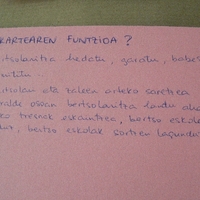 KARTEAREN FUNTZIOA ?
rtsolaritza hedatu, garatu, babes
mititu...
ertsolari eta zaleen arteko saretzea
ralde osoan bertsolaritza landu aha
eko tresnak eskaintzea, bertso eskola
dur, bertso eskolak sortzen lagundu